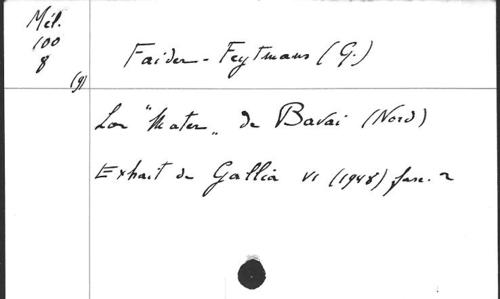 Mél.
100
8
(9)
Faider-Feytmans (G.)
Les "Mater" de Bavai (Nord)
Extrait de Gallia VI (1948) fasc. 2